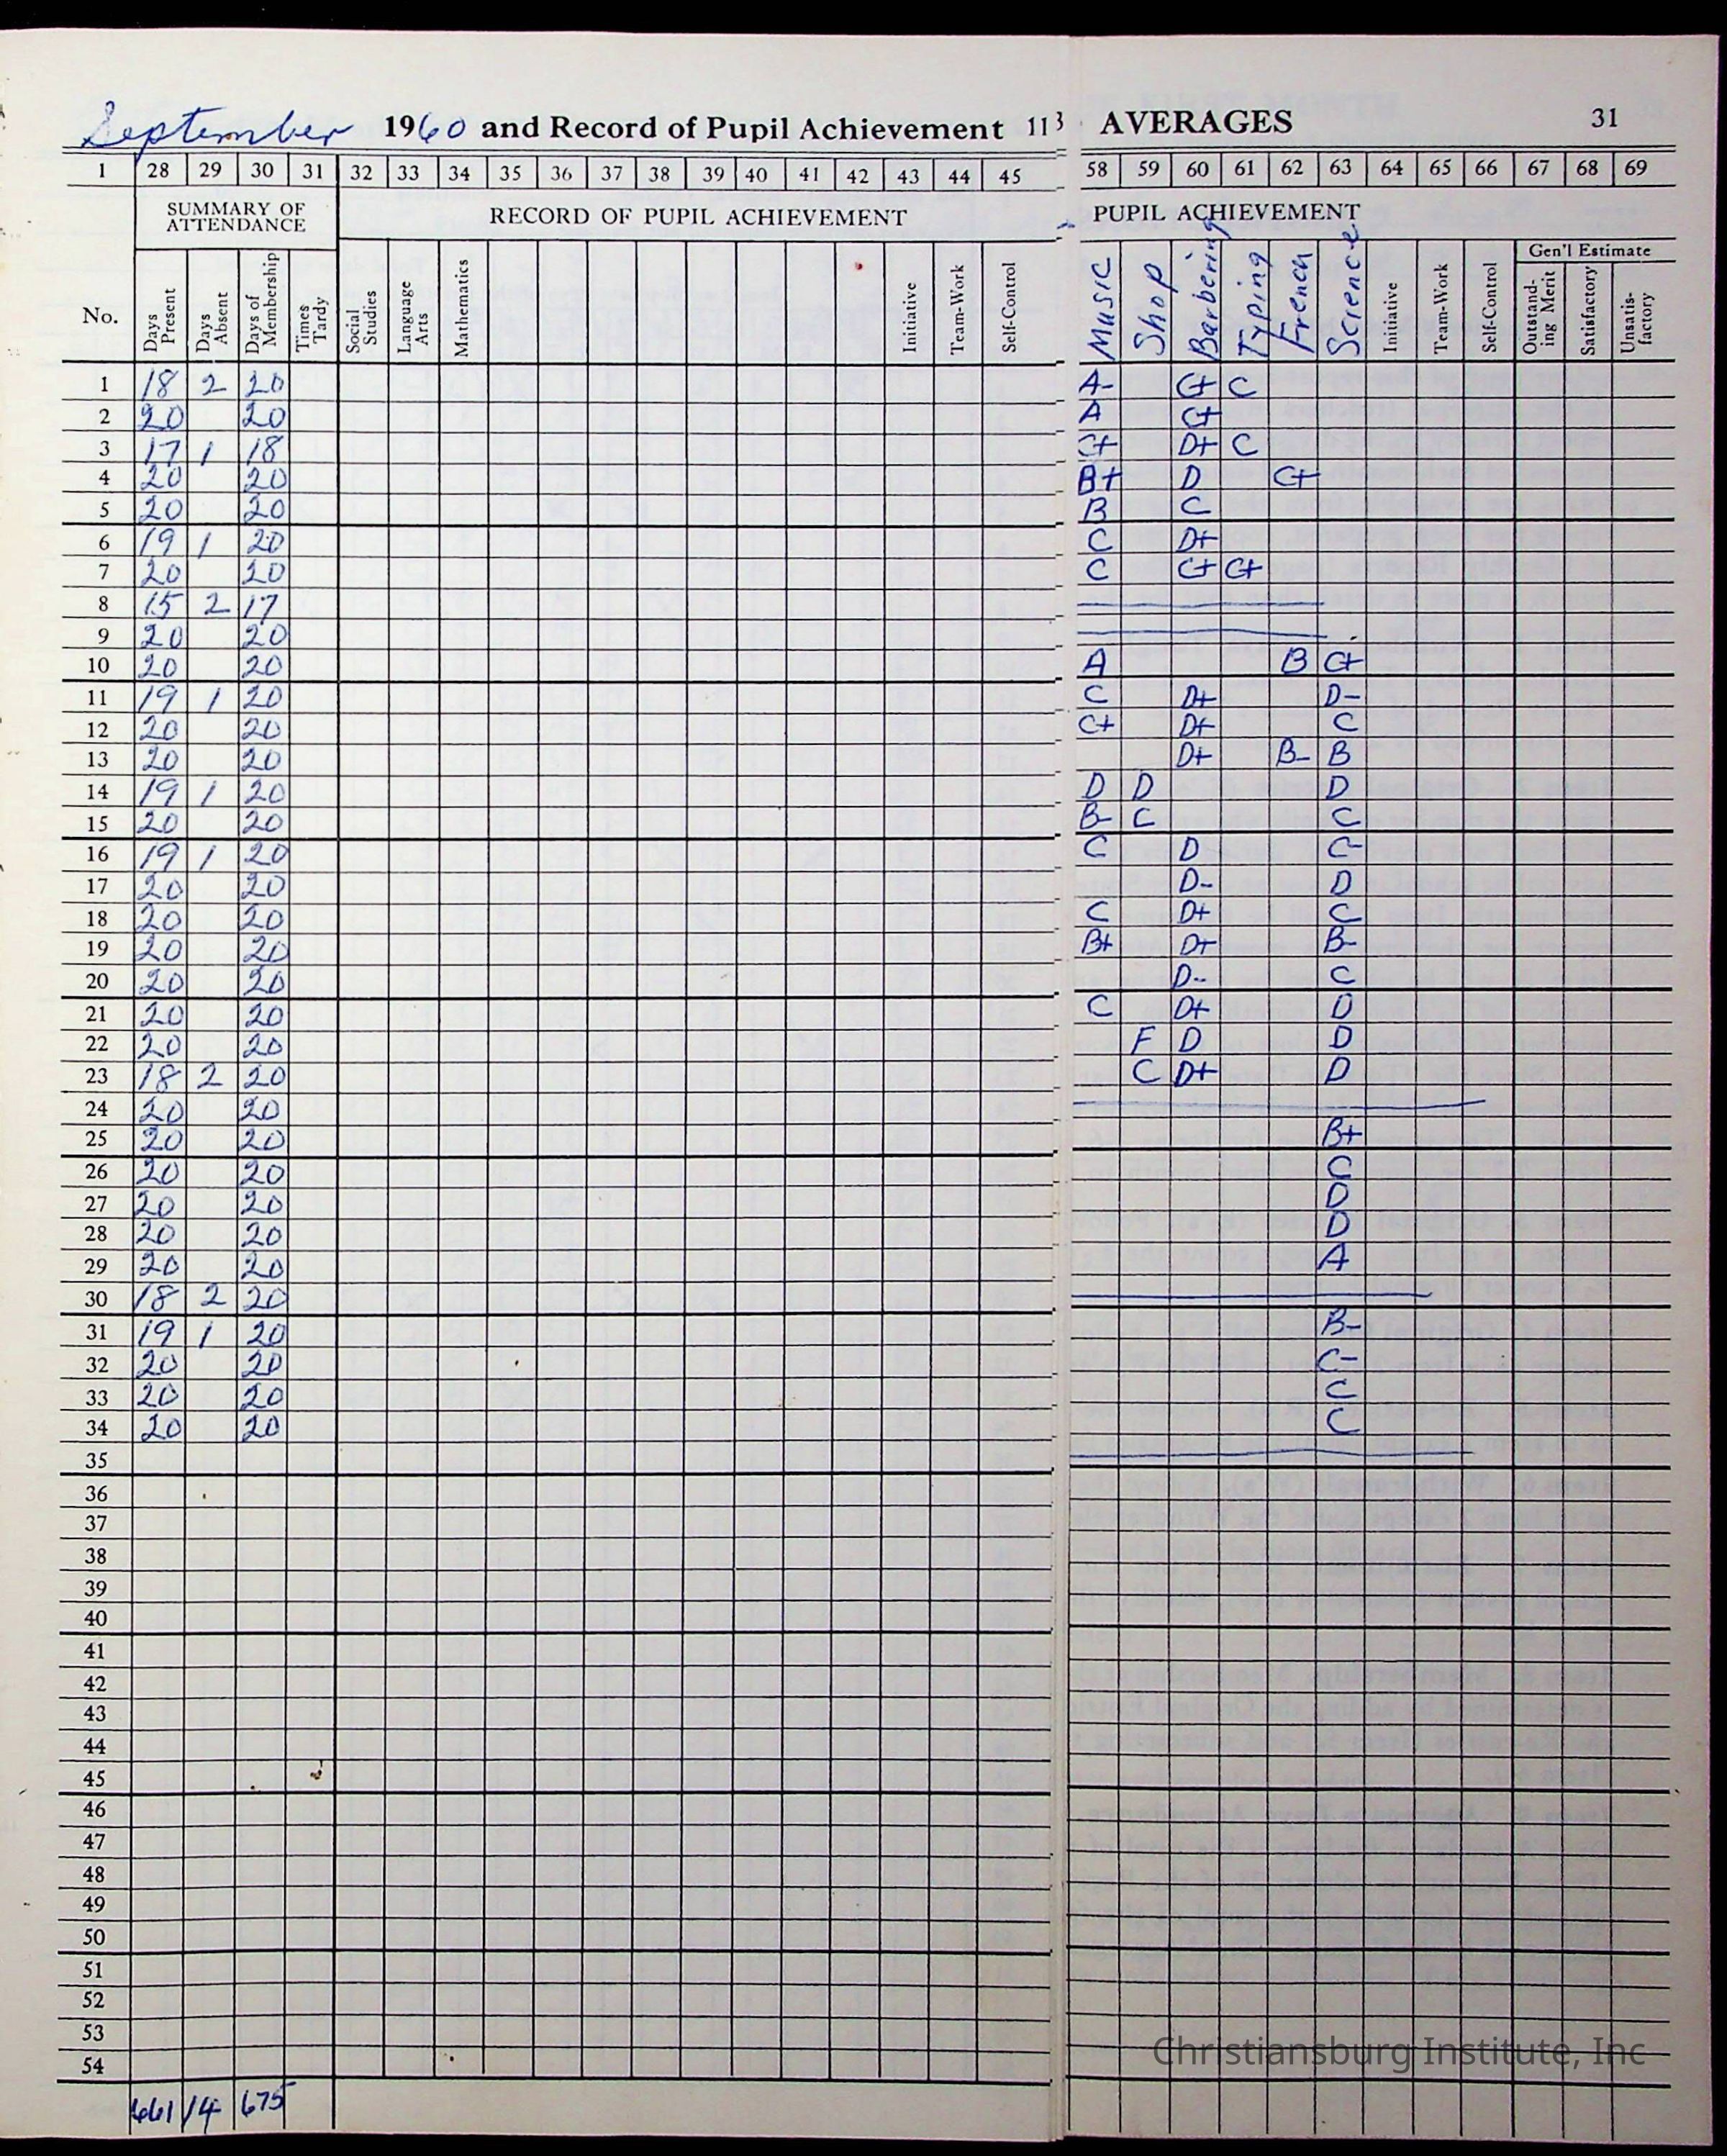 September 1960 and Record of Pupil Achievement 113 AVERAGES 31
1 28 29 30 31 32 33 34 35 36 37 38 39 40 41 42 43 44 45 58 59 60 61 62 63 64 65 66 67 68 69
SUMMARY OF ATTENDANCE RECORD OF PUPIL ACHIEVEMENT PUPIL ACHIEVEMENT
Gen'l Estimate
No. Days Present Days Absent Days of Membership Times Tardy Social Studies Language Arts Mathematics Initiative Team-Work Self-Control Music Shop Barbering Typing French Science Initiative Team-Work Self-Control Outstand-ing Merit Satisfactory Unsatis-factory
1 18 2 20 A- C+ C
2 20 20 A C+
3 17 1 18 C+ D+ C
4 20 20 B+ D C+
5 20 20 B C
6 19 1 20 C D+
7 20 20 C C+ C+
8 15 2 17
9 20 20
10 20 20 A B C+
11 19 1 20 C D+ D-
12 20 20 C+ D+ C
13 20 20 D+ B- B
14 19 1 20 D D D
15 20 20 B- C C
16 19 1 20 C D C-
17 20 20 D- D
18 20 20 C D+ C
19 20 20 B+ D+ B-
20 20 20 D- C
21 20 20 C D+ D
22 20 20 F D D
23 18 2 20 C D+ D
24 20 20
25 20 20 B+
26 20 20 C
27 20 20 D
28 20 20 D
29 20 20 A
30 18 2 20
31 19 1 20 B-
32 20 20 C-
33 20 20 C
34 20 20 C
35
36
37
38
39
40
41
42
43
44
45
46
47
48
49
50
51
52
53
54
661 14 675
Christiansburg Institute, Inc